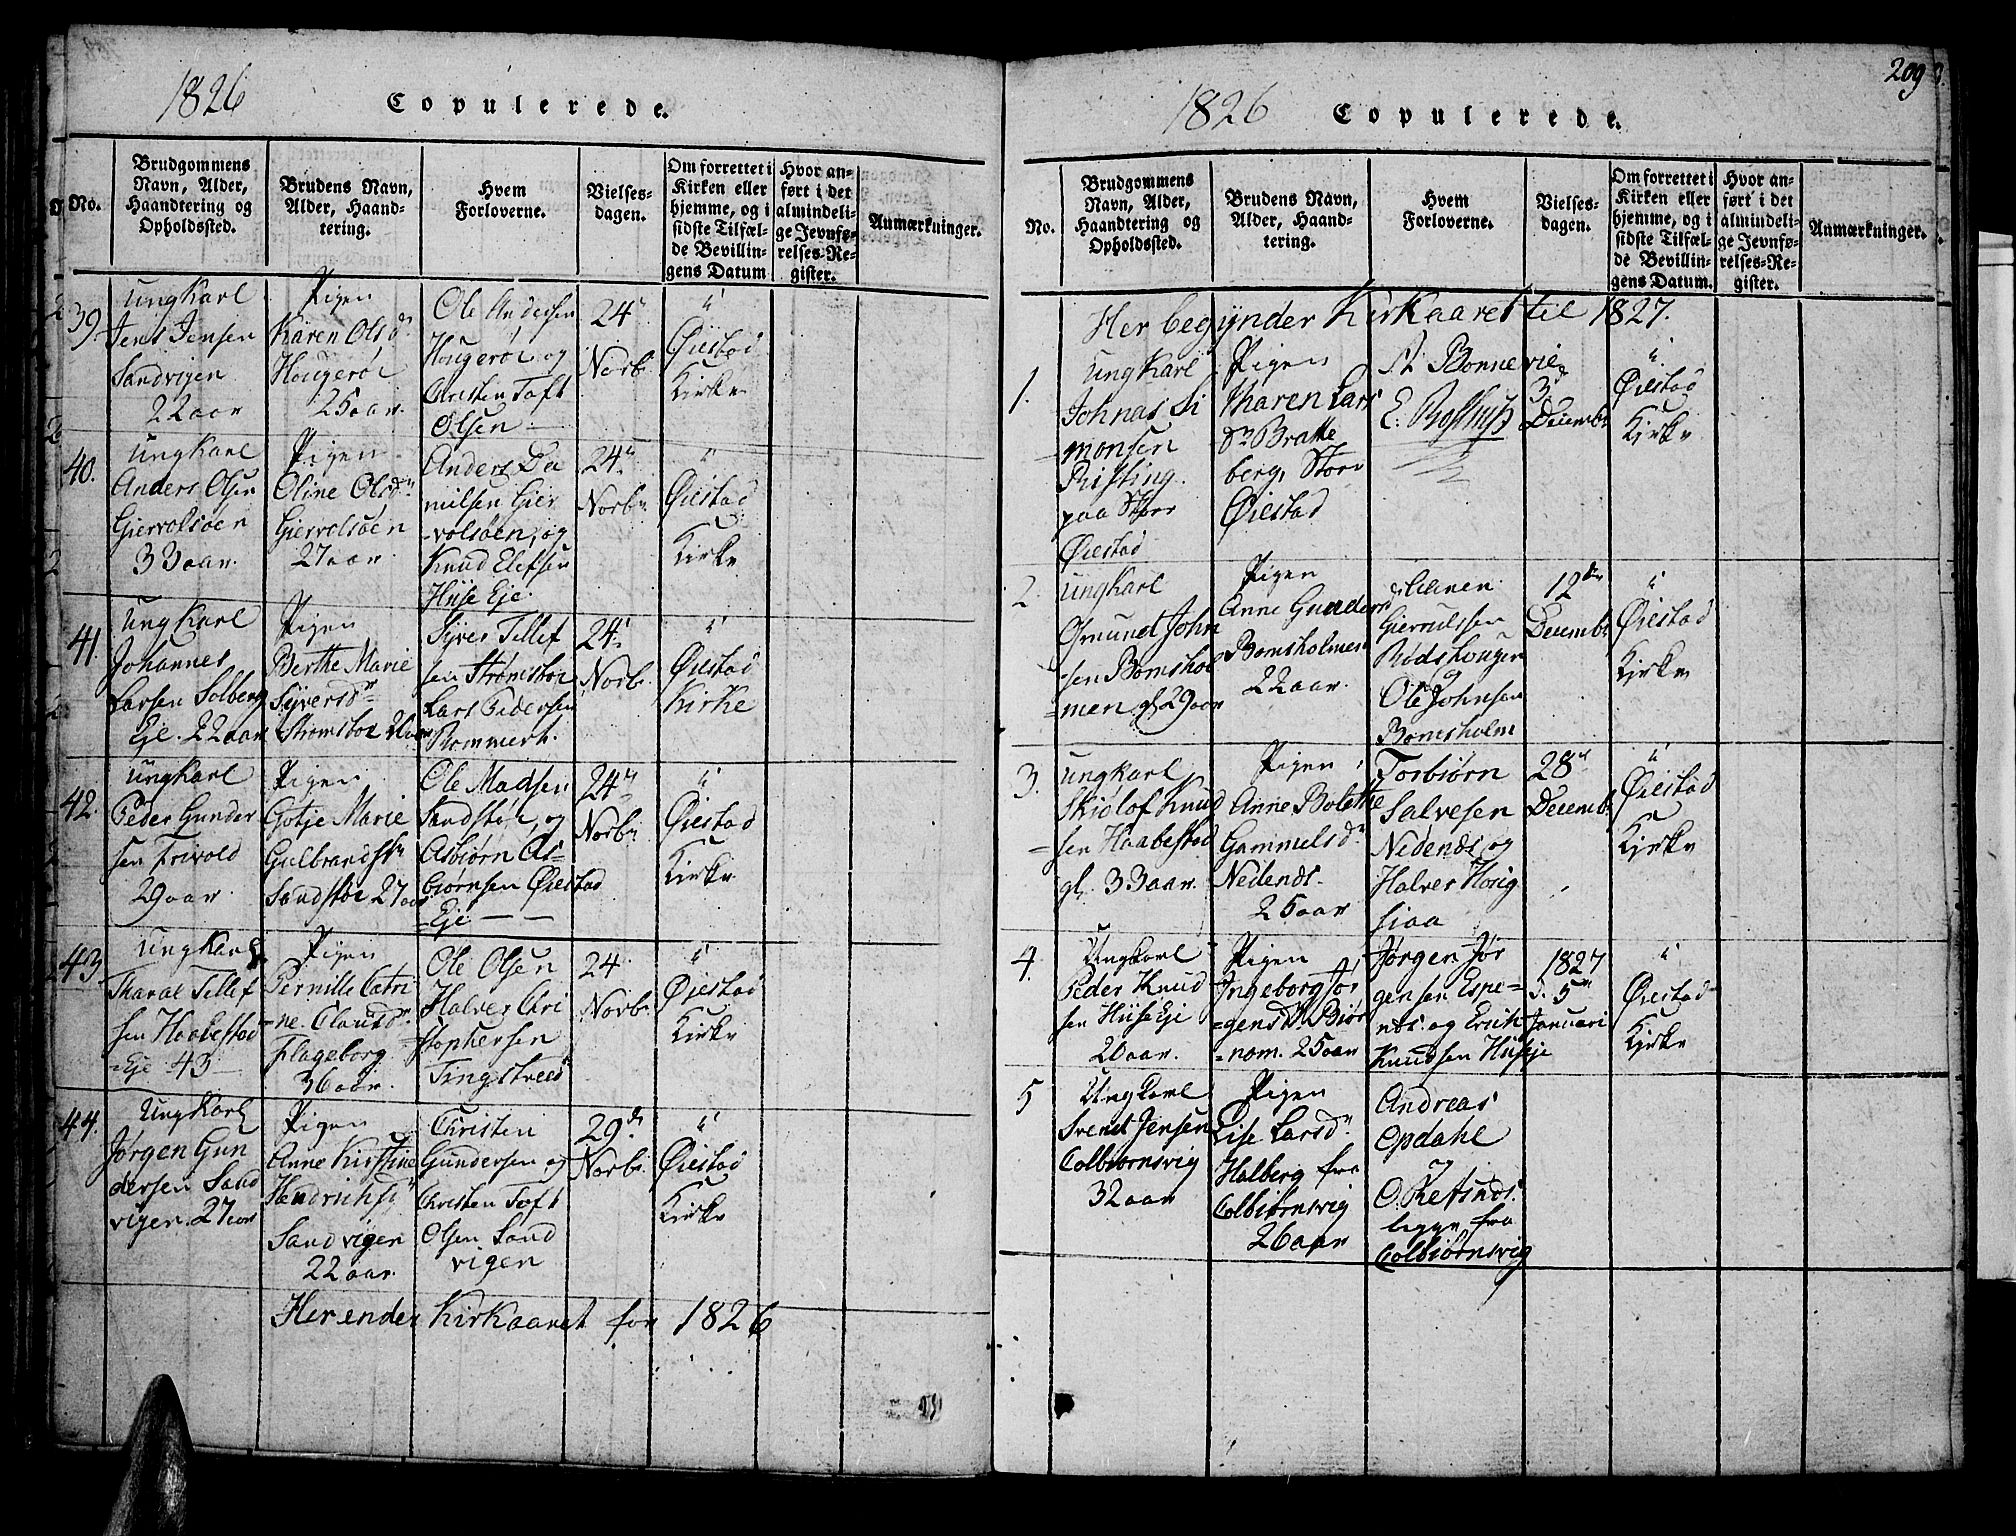 1826
Copulerede.
No.
Brudgommens
Navn, Alder,
Haandtering og
Opholdssted.
Brudens Navn,
Alder, Haand-
tering.
Hvem
Forloverne.
Vielses-
dagen.
Om forrettet i
Kirken eller
hjemme, og i
sidste Tilfæl-
de Bevillin-
gens Datum
Hvor an-
ført i det
almindeli-
ge Jevnfø-
relses-Re-
gister.
Anmærkninger.
39.
Ungkarl
Jens Jensen
Sandvigen
22 aar
Pigen
Karen Olsd
Hougerøe
25 aar.
Ole Andersen
Hougerøe og
Christen Toft
Olsen
24
Novb.
Øiestad
Kirke
40.
Ungkarl
Anders Olsen
Giervolsøen
33 aar.
Pigen
Oline Olsd
Giervolsøen
27 aar.
Anders Da
nielsen Gier
-volsøen, og
Knud Elefsen
Hüse Eje.
24
Novb
Øiestad
Kirke
41.
Ungkarl
Johannes
Larsen Solberg
Eje. 22 aar
Pigen
Berthe Marie
Sÿversd
Strømsboe
Sÿver Tellef
sen Strømsboe
Lars Pedersen
24
Novb.
Øiestad
Kirke
42.
Ungkarl
Peder Gunder
sen Trivold
29 aar.
Pigen
Gotje Marie
Gulbrandsd
Sandstøe 27 aar
Ole Madsen
Sandstøe, og
Asbiørn As-
biørnsen Øiestad
Eje
24
Novb
Øiestad
Kirke
43.
Ungkarl
Tharal Tellef
sen Haabestad
Eje 43
Pigen
Pernille Catri
=ne Clausd
Flageborg
36 aar.
Ole Olsen
Halver Chri
stophersen
Tingstveed
24
Novb.
Øiestad
Kirke
44.
Ungkarl
Jørgen Gun
dersen Sand
vigen. 27 aar
Pigen
Anne Kirstine
Hendrichsd
Sandvigen
22 aar.
Christen
Gundersen og
Christen Toft
Olsen Sand
vigen
29
Novb.
Øiestad
Kirke
Her ender Kirkaaret for 1826
209
1826
Copulerede.
No.
Brudgommens
Navn, Alder,
Haandtering og
Opholdssted.
Brudens Navn,
Alder, Haand-
tering.
Hvem
Forloverne.
Vielses-
dagen.
Om forrettet i
Kirken eller
hjemme, og i
sidste Tilfæl-
de Bevillin-
gens Datum.
Hvor an-
ført i det
almindeli-
ge Jevnfø-
relses-Re-
gister.
Anmærkninger.
Her begynder Kirkaaret til 1827.
1.
Ungkarl
Johnas Si
monsen
Risting
paa Store
Øiestad
Pigen
Tharen Lars
d Bratte
berg, Store
Øiestad
Bonnevie
3
Decemb
Øiestad
Kirke
2.
Ungkarl
Osmund John
sen Bomshol
=men gl 29 aar
Pigen
Anne Gunders
Bomsholmen
22 aar.
Giervulsen
Rødshougen
og
Ole Johnsen
Bomsholm
12
Decemb
Øiestad
Kirke
3.
Ungkarl
Skiølof Knud
sen Haabestad
gl. 33 aar.
Pigen
Anne Bolethe
Gammelsd
Nedenæs.
25 aar
Torbiørn
Salvesen
Nedenæs og
Halver Hosig
siaa
28
Decemb
Øiestad
Kirke
4.
Ungkarl
Peder Knud
sen Hüse Eje
20 aar.
Pigen
Ingeborg Jør
=gensd. Biør
=nom. 25 aar
Jørgen Jør
gensen Espe=
næs. og Erich
Knudsen Hüseje
1827
d. 5
Januari
Øiestad
Kirke
5
Ungkarl
Svend Jensen
Colbiørnsvig
32 aar
Pigen
Lise Larsd
Holberg fra
Colbiørnsvig
26 aar
Andreas
Opdahl
og
legge fra
Colbiørnsvig